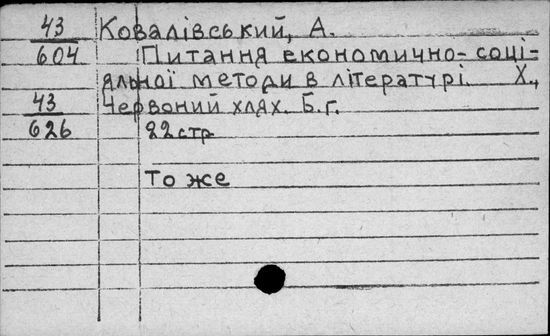 43 Ковалівський, А.
604 Питання економично-соці-
яльної методи в літературі. Х.,
43 Червоний хлях. Б.г.
626 22стр
То же